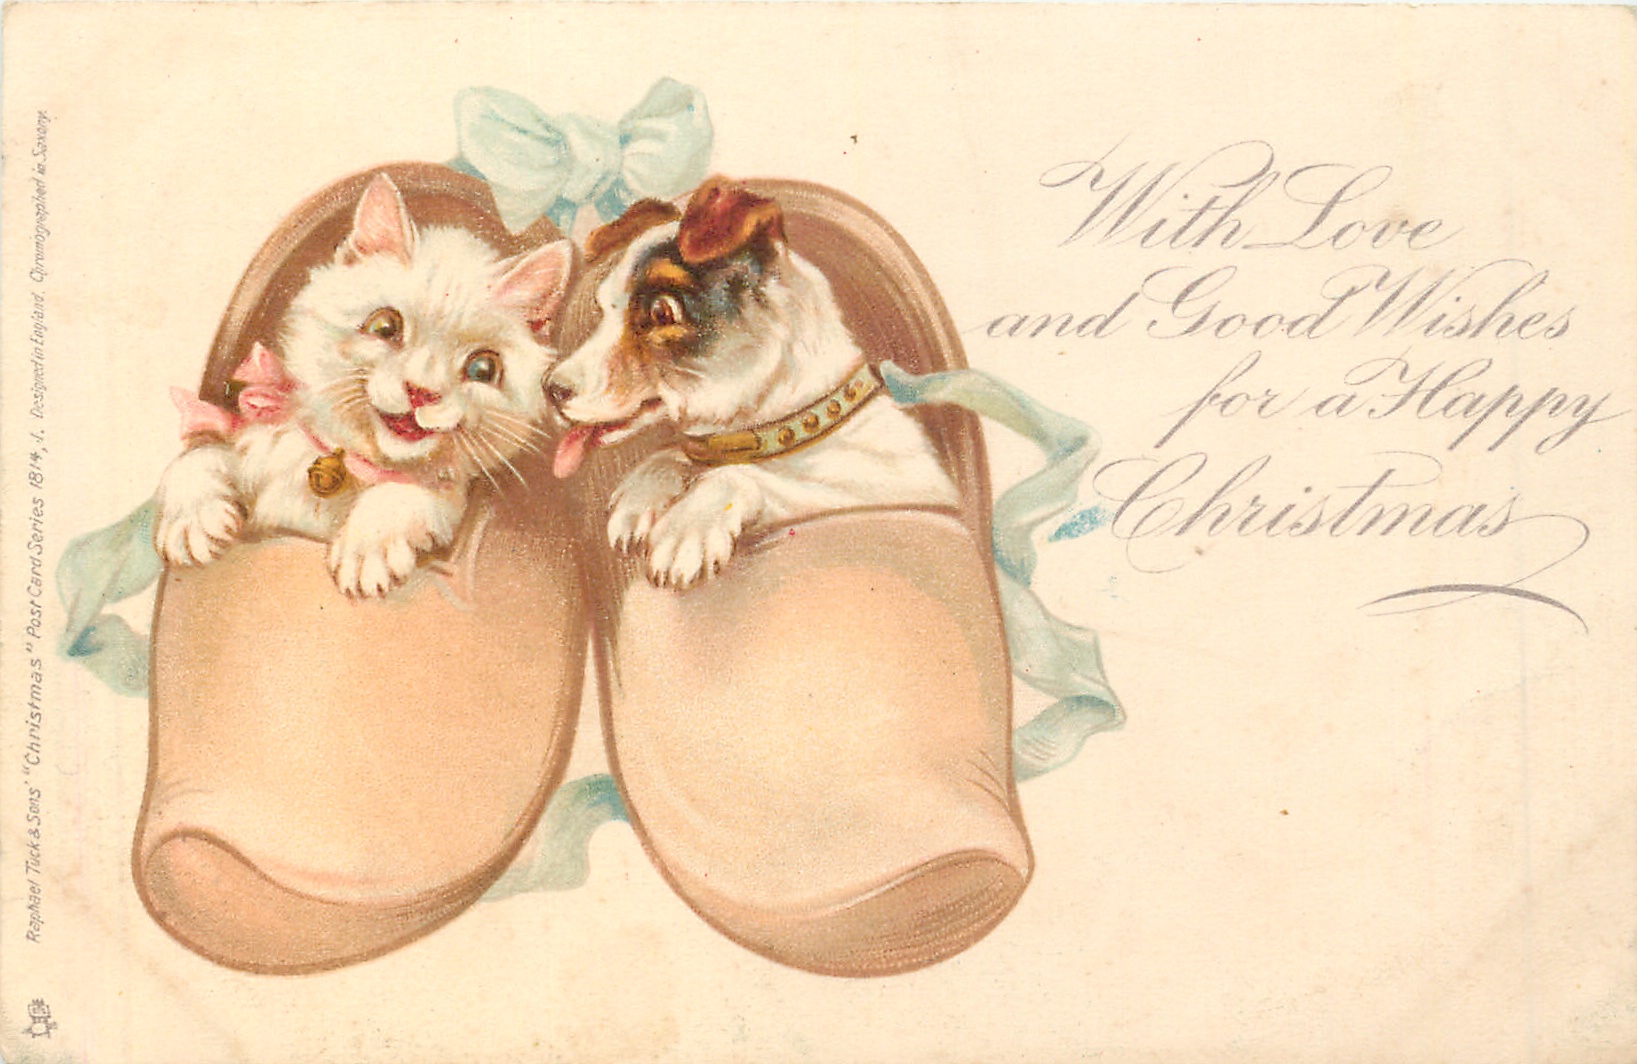 With Love
and Good Wishes
for a Happy
Christmas
Raphael Tuck & Sons' "Christmas" Post Card Series 1814, I. Designed in England, Chromographed in Saxony.